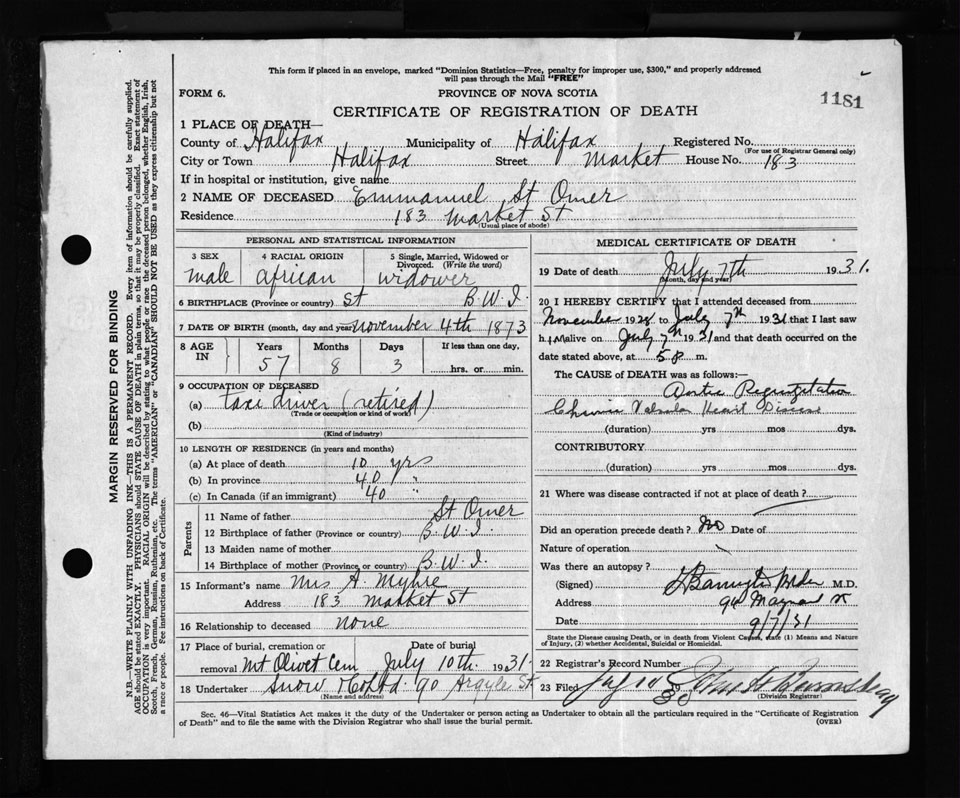 This form if placed in an envelope, marked "Dominion Statistics—Free, penalty for improper use, $300," and properly addressed
will pass through the Mail "FREE"
FORM 6.
PROVINCE OF NOVA SCOTIA
1181
CERTIFICATE OF REGISTRATION OF DEATH
1 PLACE OF DEATH—
County of Halifax Municipality of Halifax Registered No.
(For use of Registrar General only)
City or Town Halifax Street Market House No. 183
If in hospital or institution, give name
2 NAME OF DECEASED Emmanuel St Omer
Residence 183 Market St
(Usual place of abode)
PERSONAL AND STATISTICAL INFORMATION
3 SEX 4 RACIAL ORIGIN 5 Single, Married, Widowed or Divorced. (Write the word)
male african widower
6 BIRTHPLACE (Province or country) St B.W.I.
7 DATE OF BIRTH (month, day and year) november 4th 1873
8 AGE IN Years Months Days If less than one day.
57 8 3 hrs. or min.
9 OCCUPATION OF DECEASED
(a) taxi driver (retired)
(Trade or occupation or kind of work)
(b)
(Kind of industry)
10 LENGTH OF RESIDENCE (in years and months)
(a) At place of death 10 yrs
(b) In province 40 "
(c) In Canada (if an immigrant) 40 "
Parents
11 Name of father St Omer
12 Birthplace of father (Province or country) B.W.I.
13 Maiden name of mother
14 Birthplace of mother (Province or country) B.W.I.
15 Informant's name Mrs A.
Address 183 Market St
16 Relationship to deceased none
17 Place of burial, cremation or removal Date of burial
Mt Olivet Cem July 10th 1931
18 Undertaker Snow & Co Ltd 90 Argyle St
(Name and address)
MEDICAL CERTIFICATE OF DEATH
19 Date of death July 7th 1931.
(Month, day and year)
20 I HEREBY CERTIFY that I attended deceased from
November 1928 to July 7th 1931 that I last saw
him alive on July 7th 1931 and that death occurred on the
date stated above, at 5 p m.
The CAUSE OF DEATH was as follows:—
Aortic Regurgitation
Chronic Valvular Heart Disease
(duration) yrs mos dys.
CONTRIBUTORY.
(duration) yrs mos dys.
21 Where was disease contracted if not at place of death?
Did an operation precede death? No Date of
Nature of operation
Was there an autopsy?
(Signed) M.D.
Address Maynard St
Date 9/7/31
State the Disease causing Death, or in death from Violent Causes, state (1) Means and Nature
of Injury, (2) whether Accidental, Suicidal or Homicidal.
22 Registrar's Record Number
23 Filed
(Division Registrar)
Sec. 46—Vital Statistics Act makes it the duty of the Undertaker or person acting as Undertaker to obtain all the particulars required in the "Certificate of Registration
of Death" and to file the same with the Division Registrar who shall issue the burial permit.
(OVER)
MARGIN RESERVED FOR BINDING
N.B.—WRITE PLAINLY WITH UNFADING INK—THIS IS A PERMANENT RECORD. Every item of information should be carefully supplied.
AGE should be stated EXACTLY. PHYSICIANS should STATE CAUSE OF DEATH in plain terms, so that it may be properly classified. Exact statement of
OCCUPATION is very important. RACIAL ORIGIN will be described by stating to what people or race the deceased person belonged, whether English, Irish,
Scotch, French, German, Russian, Ruthenian, etc. The terms "AMERICAN" or "CANADIAN" SHOULD NOT BE USED as they express citizenship but not
a race or people. Fee instructions on back of Certificate.